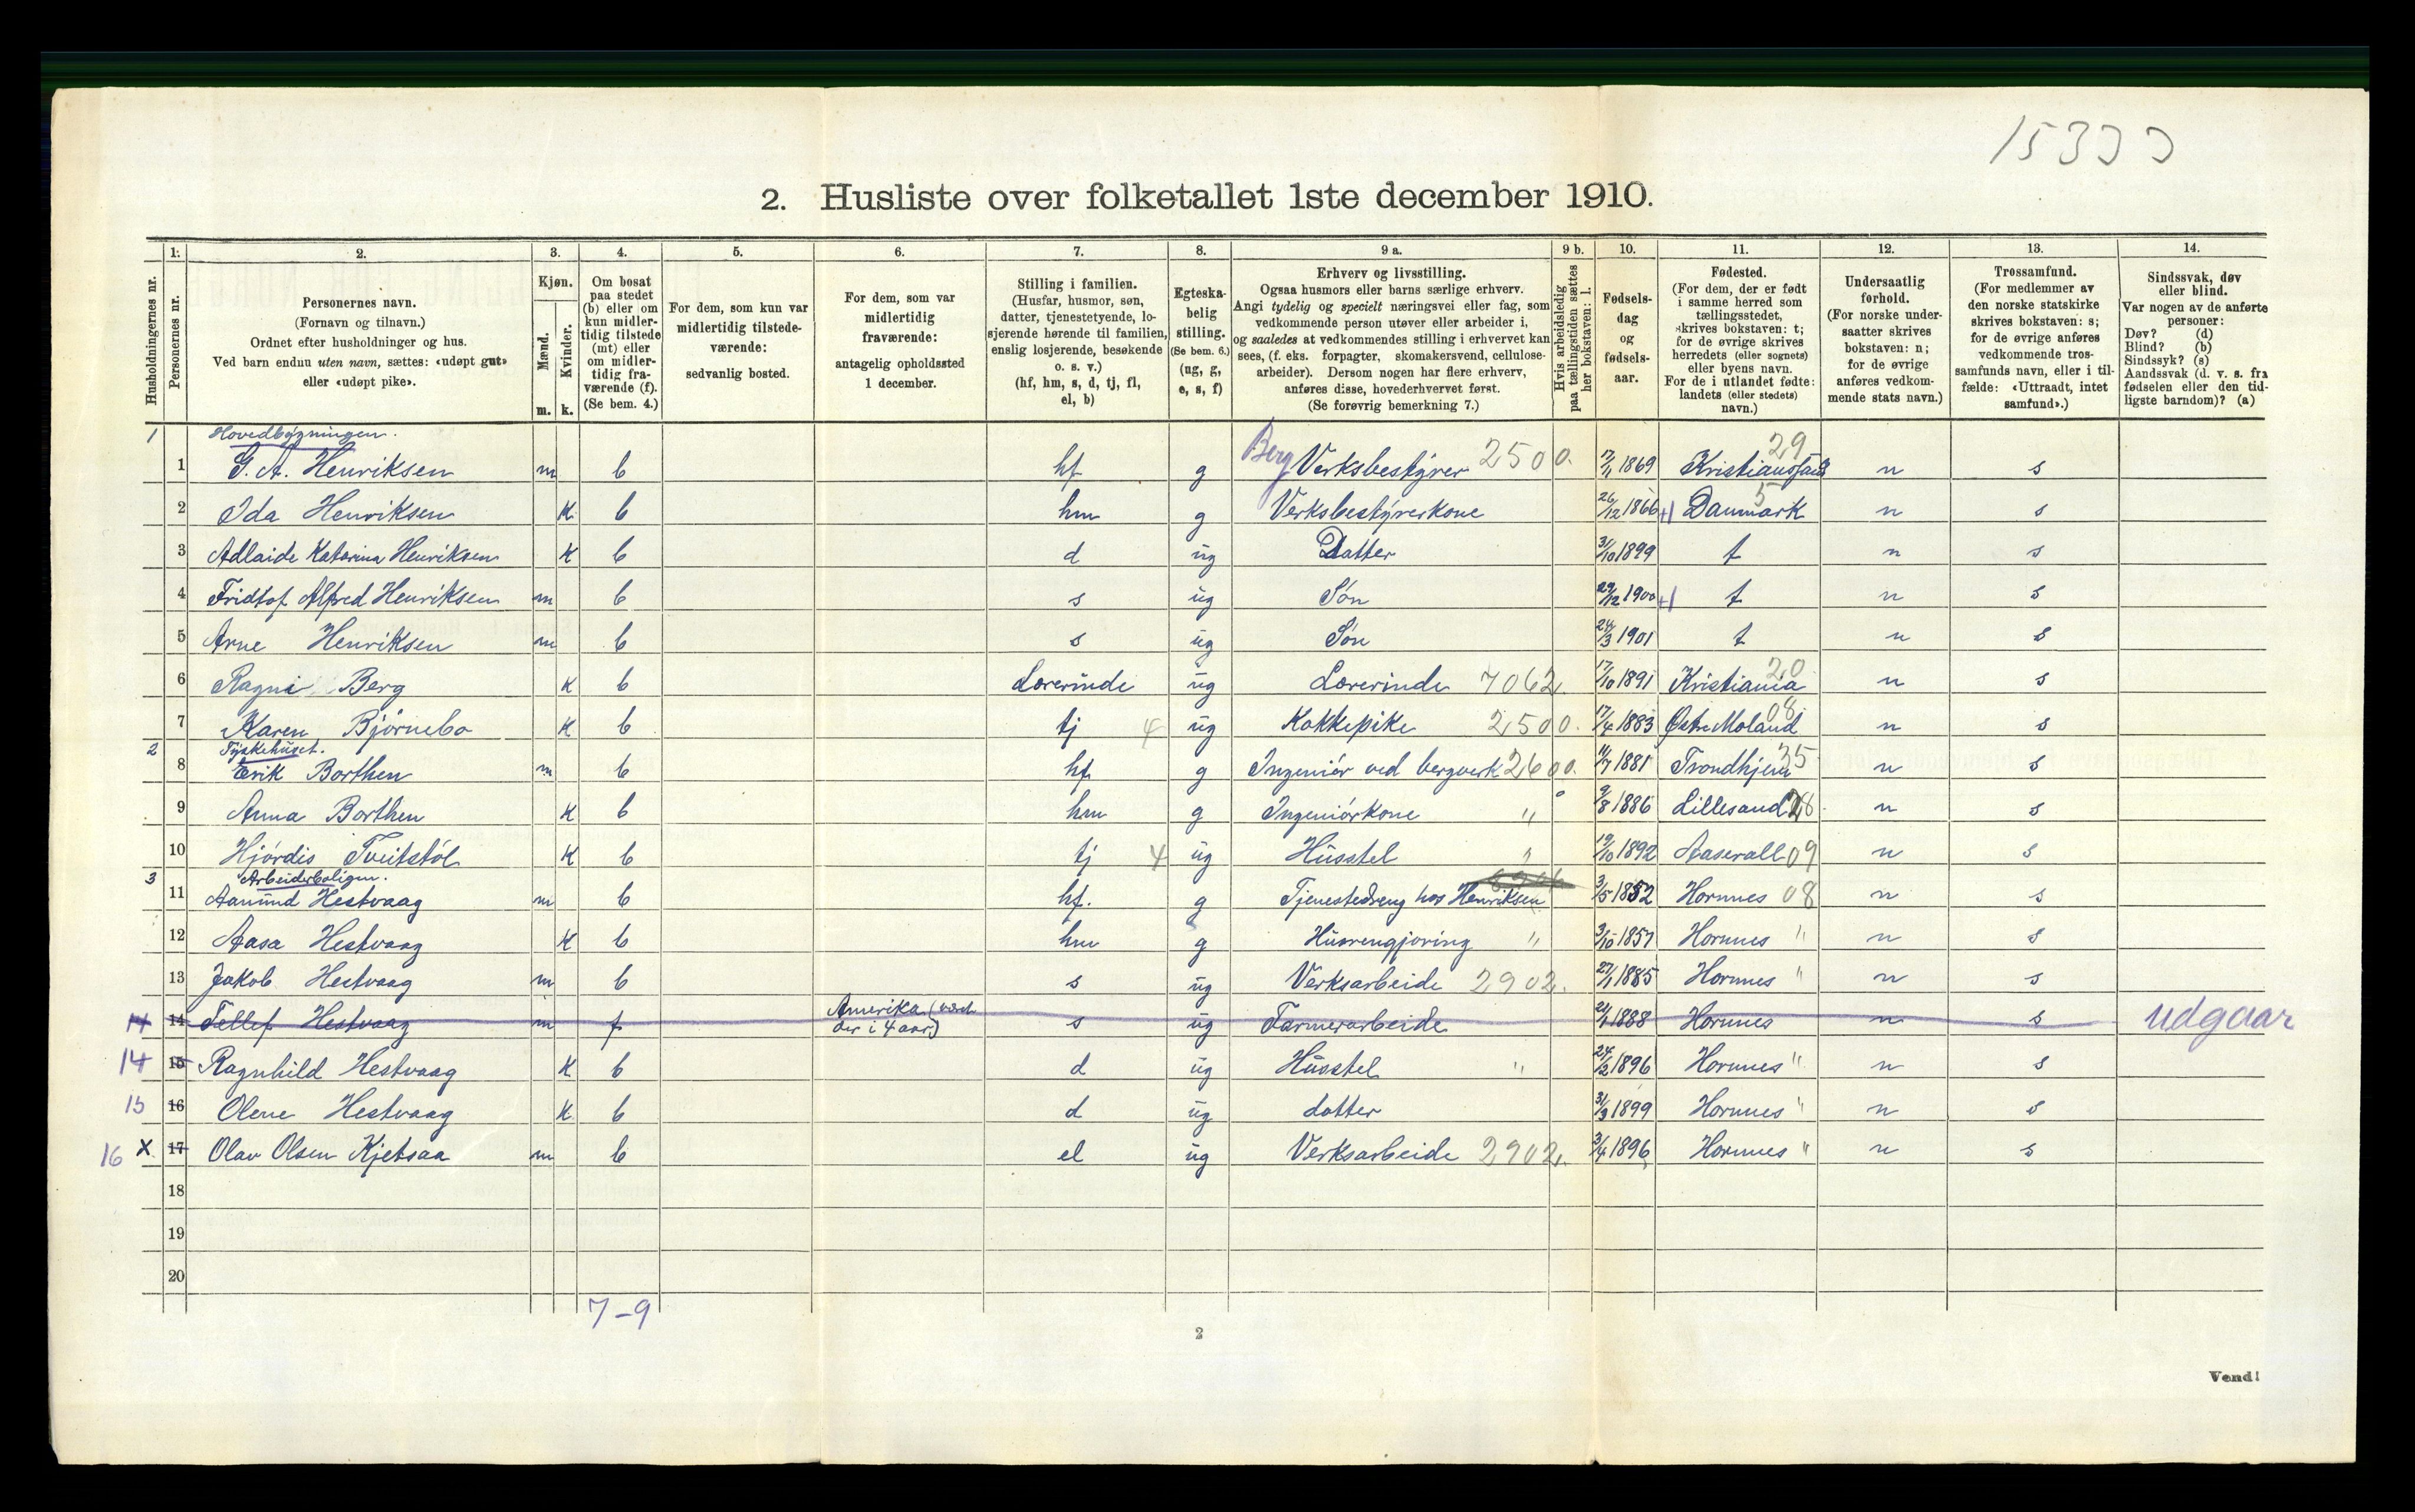 15333
2. Husliste over folketallet 1ste december 1910.
1. 2. 3. 4. 5. 6. 7. 8. 9 a. 9 b. 10. 11. 12. 13. 14.
Husholdningernes nr.
Personernes nr.
Personernes navn.
(Fornavn og tilnavn.)
Ordnet efter husholdninger og hus.
Ved barn endnu uten navn, sættes: «udøpt gut»
eller «udøpt pike».
Kjøn.
Mænd. m.
Kvinder. k.
Om bosat
paa stedet
(b) eller om
kun midler-
tidig tilstede
(mt) eller
om midler-
tidig fra-
værende (f).
(Se bem. 4.)
For dem, som kun var
midlertidig tilstede-
værende:
sedvanlig bosted.
For dem, som var
midlertidig
fraværende:
antagelig opholdssted
1 december.
Stilling i familien.
(Husfar, husmor, søn,
datter, tjenestetyende, lo-
sjerende hørende til familien,
enslig losjerende, besøkende
o. s. v.)
(hf, hm, s, d, tj, fl,
el, b)
Egteska-
belig
stilling.
(Se bem. 6.)
(ug, g,
e, s, f)
Erhverv og livsstilling.
Ogsaa husmors eller barns særlige erhverv.
Angi tydelig og specielt næringsvei eller fag, som
vedkommende person utøver eller arbeider i,
og saaledes at vedkommendes stilling i erhvervet kan
sees, (f. eks. forpagter, skomakersvend, cellulose-
arbeider). Dersom nogen har flere erhverv,
anføres disse, hovederhvervet først.
(Se forøvrig bemerkning 7.)
Hvis arbeidsledig
paa tællingstiden sættes
her bokstaven: l.
Fødsels-
dag
og
fødsels-
aar.
Fødested.
(For dem, der er født
i samme herred som
tællingsstedet,
skrives bokstaven: t;
for de øvrige skrives
herredets (eller sognets)
eller byens navn.
For de i utlandet fødte:
landets (eller stedets)
navn.)
Undersaatlig
forhold.
(For norske under-
saatter skrives
bokstaven: n;
for de øvrige
anføres vedkom-
mende stats navn.)
Trossamfund.
(For medlemmer av
den norske statskirke
skrives bokstaven: s;
for de øvrige anføres
vedkommende tros-
samfunds navn, eller i til-
fælde: «Uttraadt, intet
samfund».)
Sindssvak, døv
eller blind.
Var nogen av de anførte
personer:
Døv? (d)
Blind? (b)
Sindssyk? (s)
Aandssvak (d. v. s. fra
fødselen eller den tid-
ligste barndom)? (a)
1 Hovedbygningen.
1 G. A. Henriksen m b hf g Berg Verksbestyrer 2500. 17/11 1869 Kristianssand 29 n s
2 Ida Henriksen k b hm g Verksbestyrerkone 26/12 1866 +1 Danmark 5 n s
3 Adlaide Katarina Henriksen k b d ug Datter 31/10 1899 t n s
4 Fridtof Alfred Henriksen m b s ug Søn 29/12 1900 +1 t n s
5 Arne Henriksen m b s ug Søn 24/3 1901 t n s
6 Ragni Berg k b Lærerinde ug Lærerinde 7062. 17/10 1891 Kristiania 20 n s
7 Karen Bjørnebo k b tj 4 ug Kokkepike 2500. 17/4 1883 Østre Moland 08 n s
2 Tyskehuset.
8 Erik Borthen m b hf g Ingeniør ved bergverk 2600. 11/7 1881 Trondhjem 35 n s
9 Anna Borthen k b hm g Ingeniørkone " 9/8 1886 Lillesand 28 n s
10 Hjørdis Tveitstøl k b tj 4 ug Husstel " 19/10 1892 Aaserall 09 n s
3 Arbeiderboligen.
11 Aanund Hestvaag m b hf. g Tjenestedreng hos Henriksen 3/5 1852 Hornnes 08 n s
12 Aasa Hestvaag k b hm g Husrengjøring " 3/10 1857 Hornnes " n s
13 Jakob Hestvaag m b s ug Verksarbeide 2902. 27/1 1885 Hornnes " n s
14 14 Tellef Hestvaag m f Amerika (været
der i 4 aar) s ug Farmerarbeide 21/1 1888 Hornnes n s udgaar
14 15 Ragnhild Hestvaag k b d ug Husstel " 24/2 1896 Hornnes " n s
15 16 Olene Hestvaag k b d ug datter 31/3 1899 Hornnes " n s
16 x 17 Olav Olsen Kjetsaa m b el ug Verksarbeide 2902. 3/4 1896 Hornnes " n s
18
19
20
7-9
2
Vend!